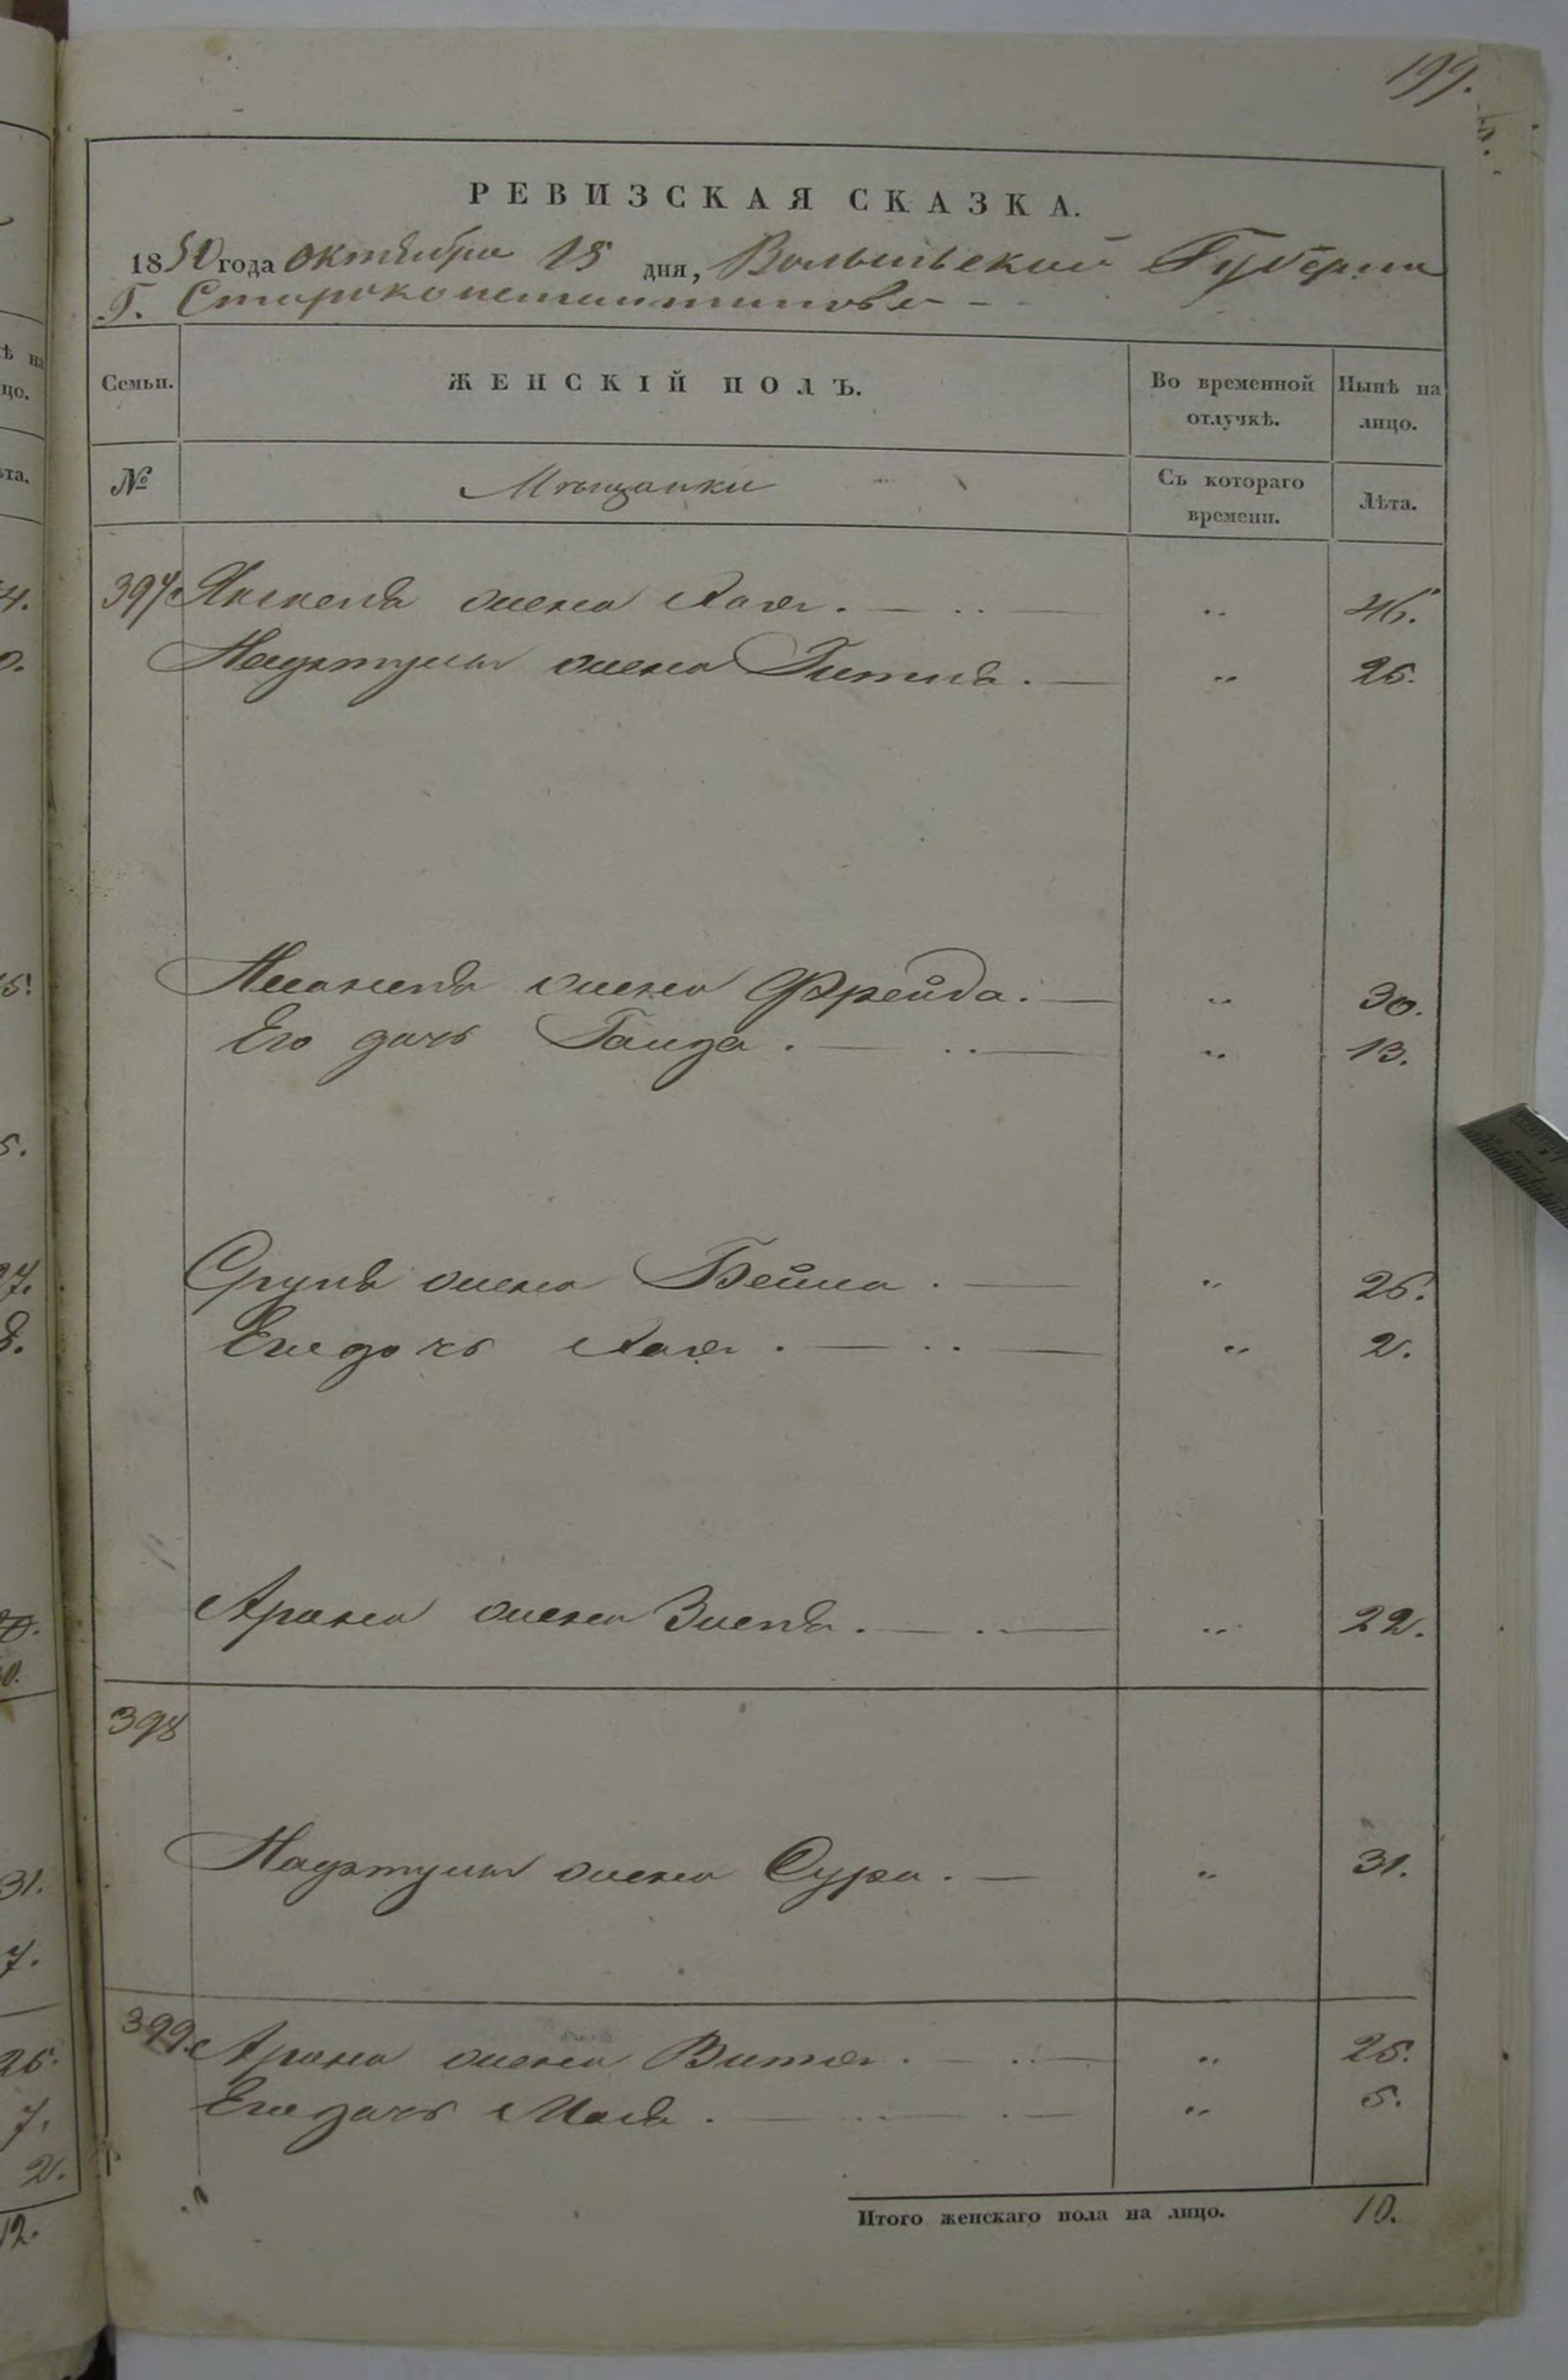 199.
РЕВИЗСКАЯ СКАЗКА.
1850 года октября 15 дня, Волынской Губерни
Г. Староконстантинова
Семьи. ЖЕНСКІЙ ПОЛЪ. Во временной отлучкѣ. Нынѣ на лицо.
№ Мѣщанки Съ котораго времени. Лѣта.
397 жена Хая. 46.
жена Гитля. 25.
жена Фрейда. 30.
Его дочь Ганза. 13.
Сруля жена Бейла. 26.
Его дочь Хая. 2.
Арона жена Зисля. 22.
398
жена Сура. 31.
399. Арона жена Витя. 25.
Его дочь Маля. 5.
Итого женскаго пола на лицо. 10.